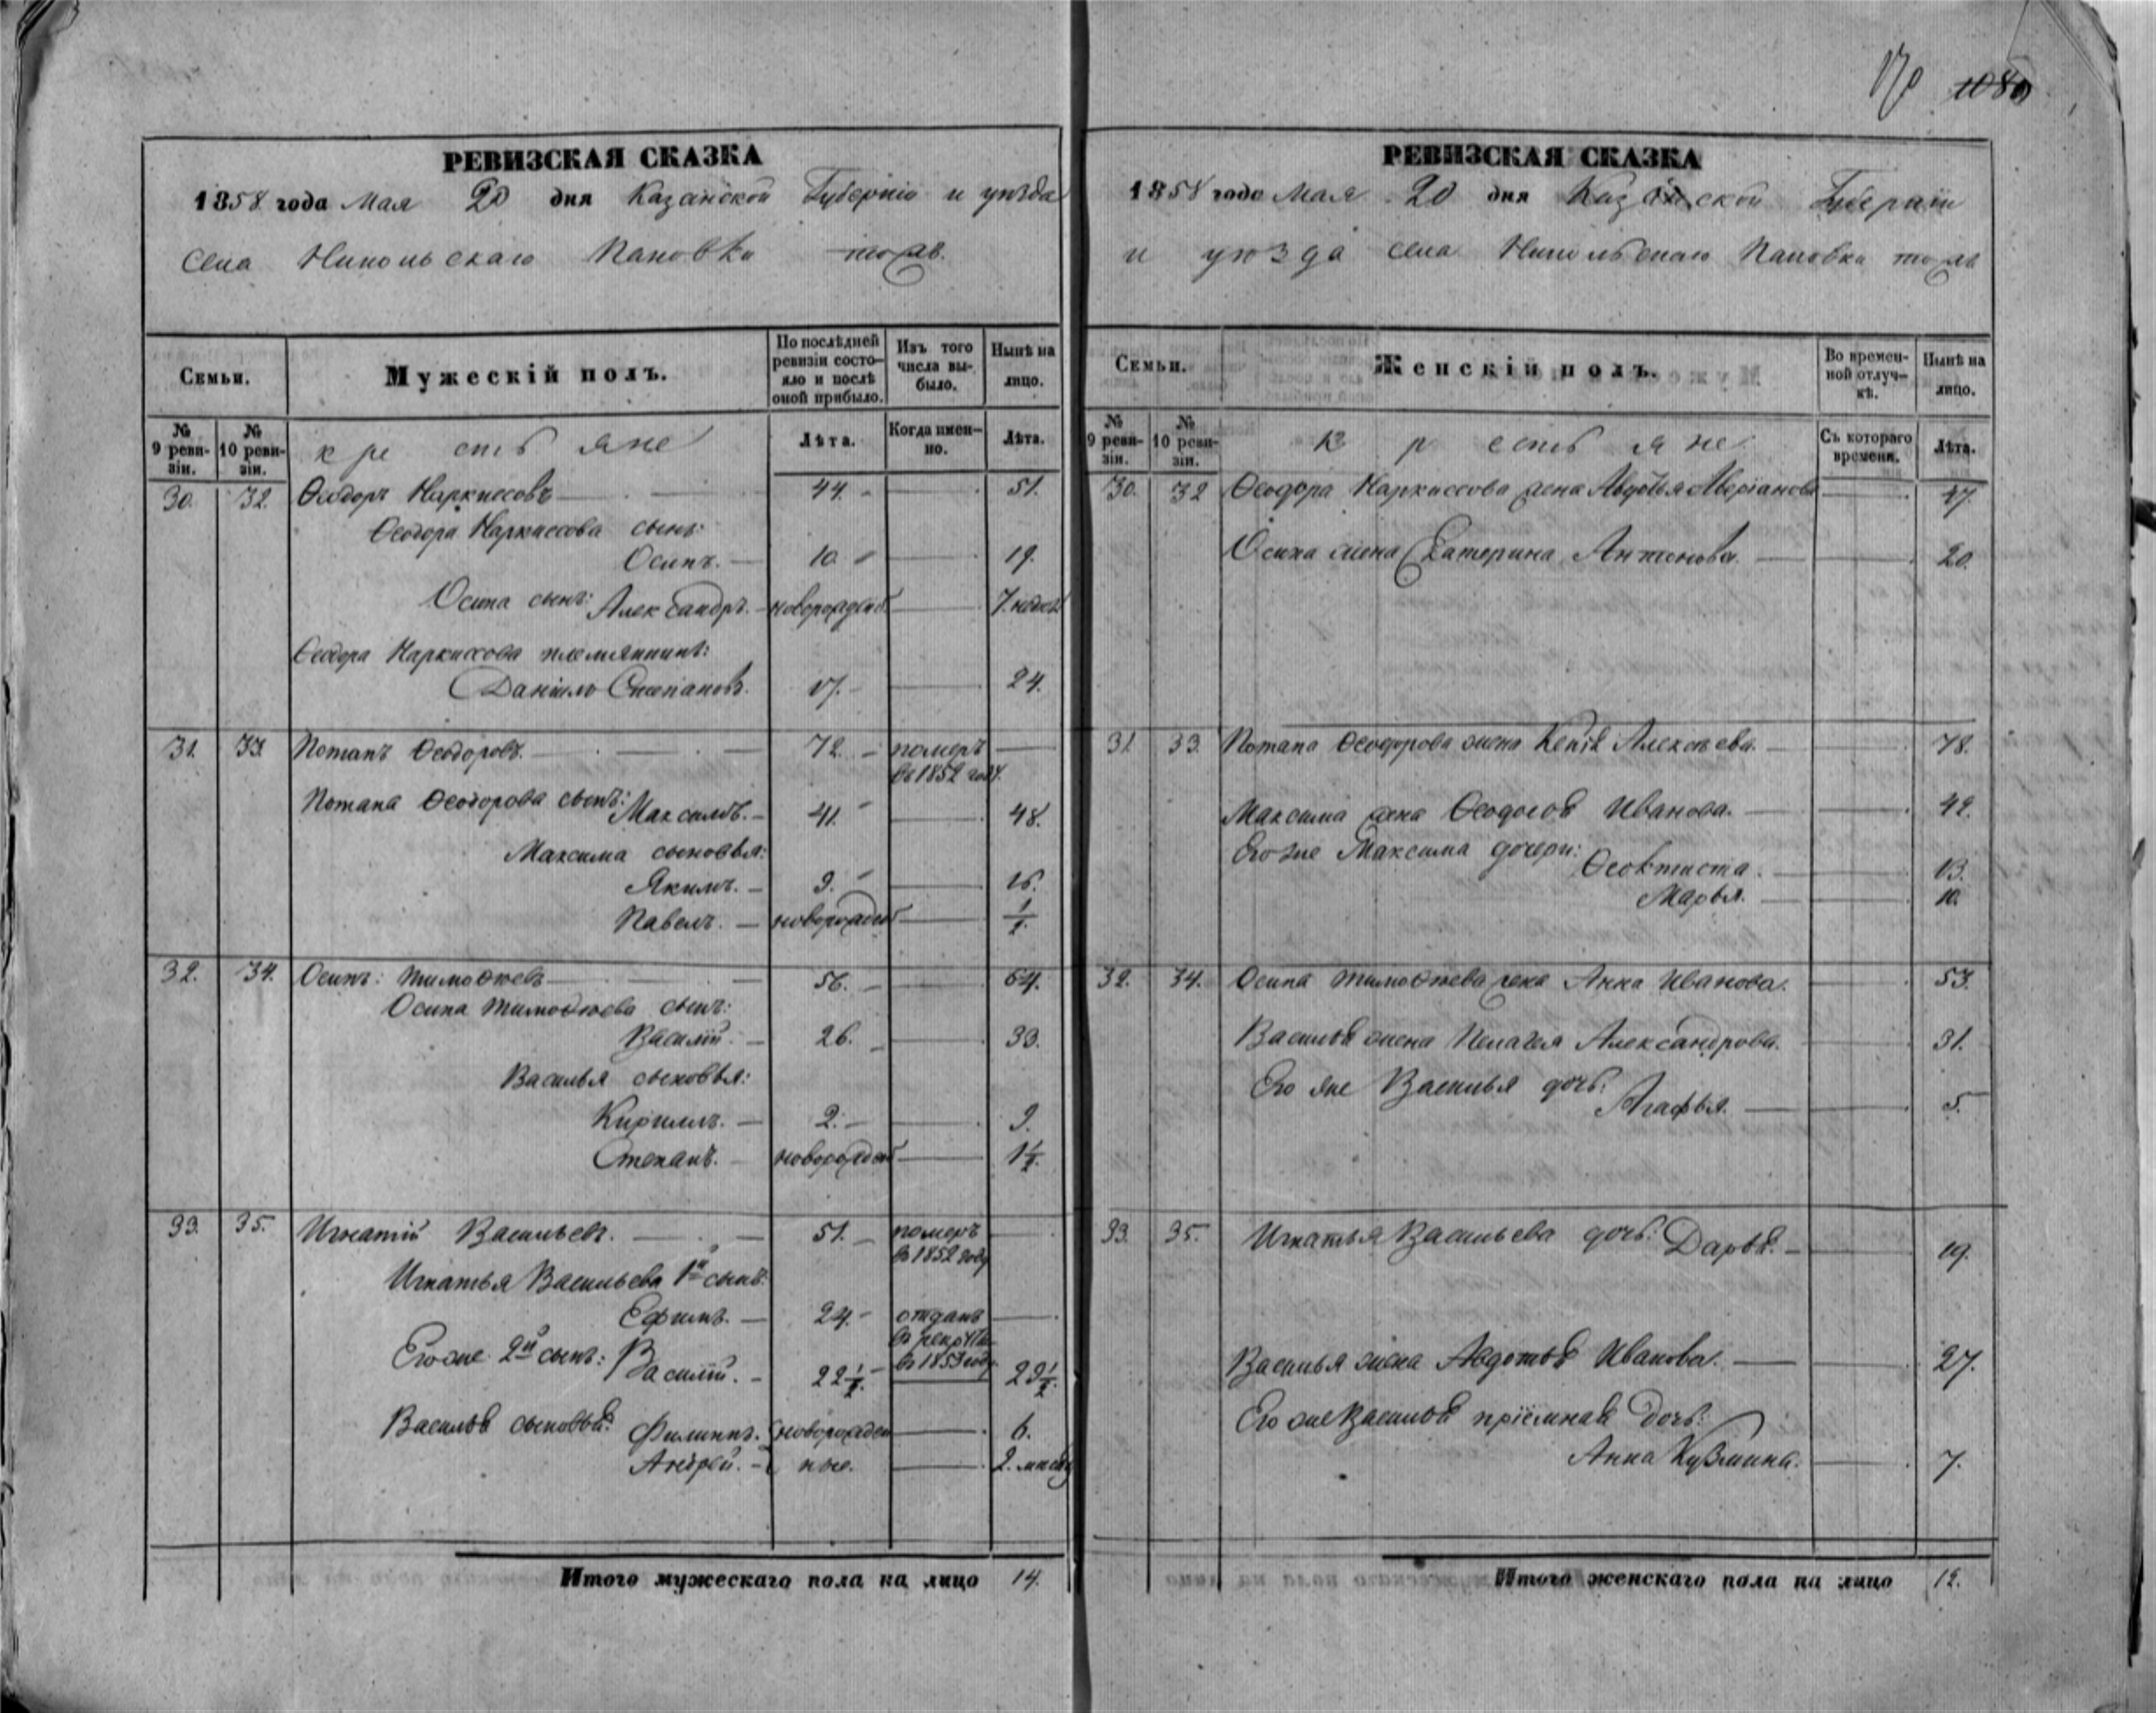 170 1080
РЕВИЗСКАЯ СКАЗКА
1858 года Мая 20 дня Казанской Губерніи и уѣзда
села Никольскаго Пановки тожъ.
Семьи.
Мужескій полъ.
По послѣдней ревизіи состояло и послѣ оной прибыло.
Изъ того числа выбыло.
Нынѣ на лицо.
№ 9 ревизіи.
№ 10 ревизіи.
крестьяне
Лѣта.
Когда именно.
Лѣта.
30. 32. Ѳеодоръ Наркиссовъ 44. 51.
Ѳеодора Наркиссова сынъ:
Осипъ. 10. 19.
Осипа сынъ: Александръ. новорожден 7 недел
Ѳеодора Наркиссова племянникъ:
Данило Степановъ. 17. 24.
31. 33. Потапъ Ѳеодоровъ. 72. померъ
въ 1852 году.
Потапа Ѳеодорова сынъ: Максимъ. 41. 48.
Максима сыновья:
Якимъ. 9. 16.
Павелъ. новорожден 1/2.
32. 34. Осипъ: Тимоѳѣевъ 56. 64.
Осипа Тимоѳѣева сынъ:
Василій. 26. 33.
Василья сыновья:
Кирилъ. 2. 9.
Степанъ. новорожден 1 1/2.
33. 35. Игнатій Васильевъ. 51. померъ
въ 1852 году
Игнатья Васильева 1й сынъ:
Ефимъ. 24. отданъ
въ рекруты
въ 1853 году
Его же 2й сынъ: Василій. 22 1/2. 29 1/2.
Василья сыновья: Филиппъ. новорожден 6.
Андрей. ные. 2. месяц
Итого мужескаго пола на лицо 14.
РЕВИЗСКАЯ СКАЗКА
1858 года Мая 20 дня Казанской Губерніи
и уѣзда села Никольскаго Пановки тожъ
Семьи.
Женскій полъ.
Во временной отлучкѣ.
Нынѣ на лицо.
№ 9 ревизіи.
№ 10 ревизіи.
Крестьяне
Съ котораго времени.
Лѣта.
30. 32 Ѳеодора Наркиссова жена Авдотья Аверіанова 47.
Осипа жена Екатерина Антонова. 20.
31. 33. Потапа Ѳеодорова жена Ксенія Алексѣева. 78.
Максима жена Ѳеодосья Иванова. 42.
Его же Максима дочери: Ѳеоктиста. 13.
Марья. 10.
32. 34. Осипа Тимоѳѣева жена Анна Иванова. 53.
Василья жена Пелагея Александрова. 31.
Его же Василья дочь: Агафья. 5.
33. 35. Игнатья Васильева дочь: Дарья. 19.
Василья жена Авдотья Иванова. 27.
Его же Василья пріемная дочь:
Анна Кузмина. 7.
Итого женскаго пола на лицо 12.